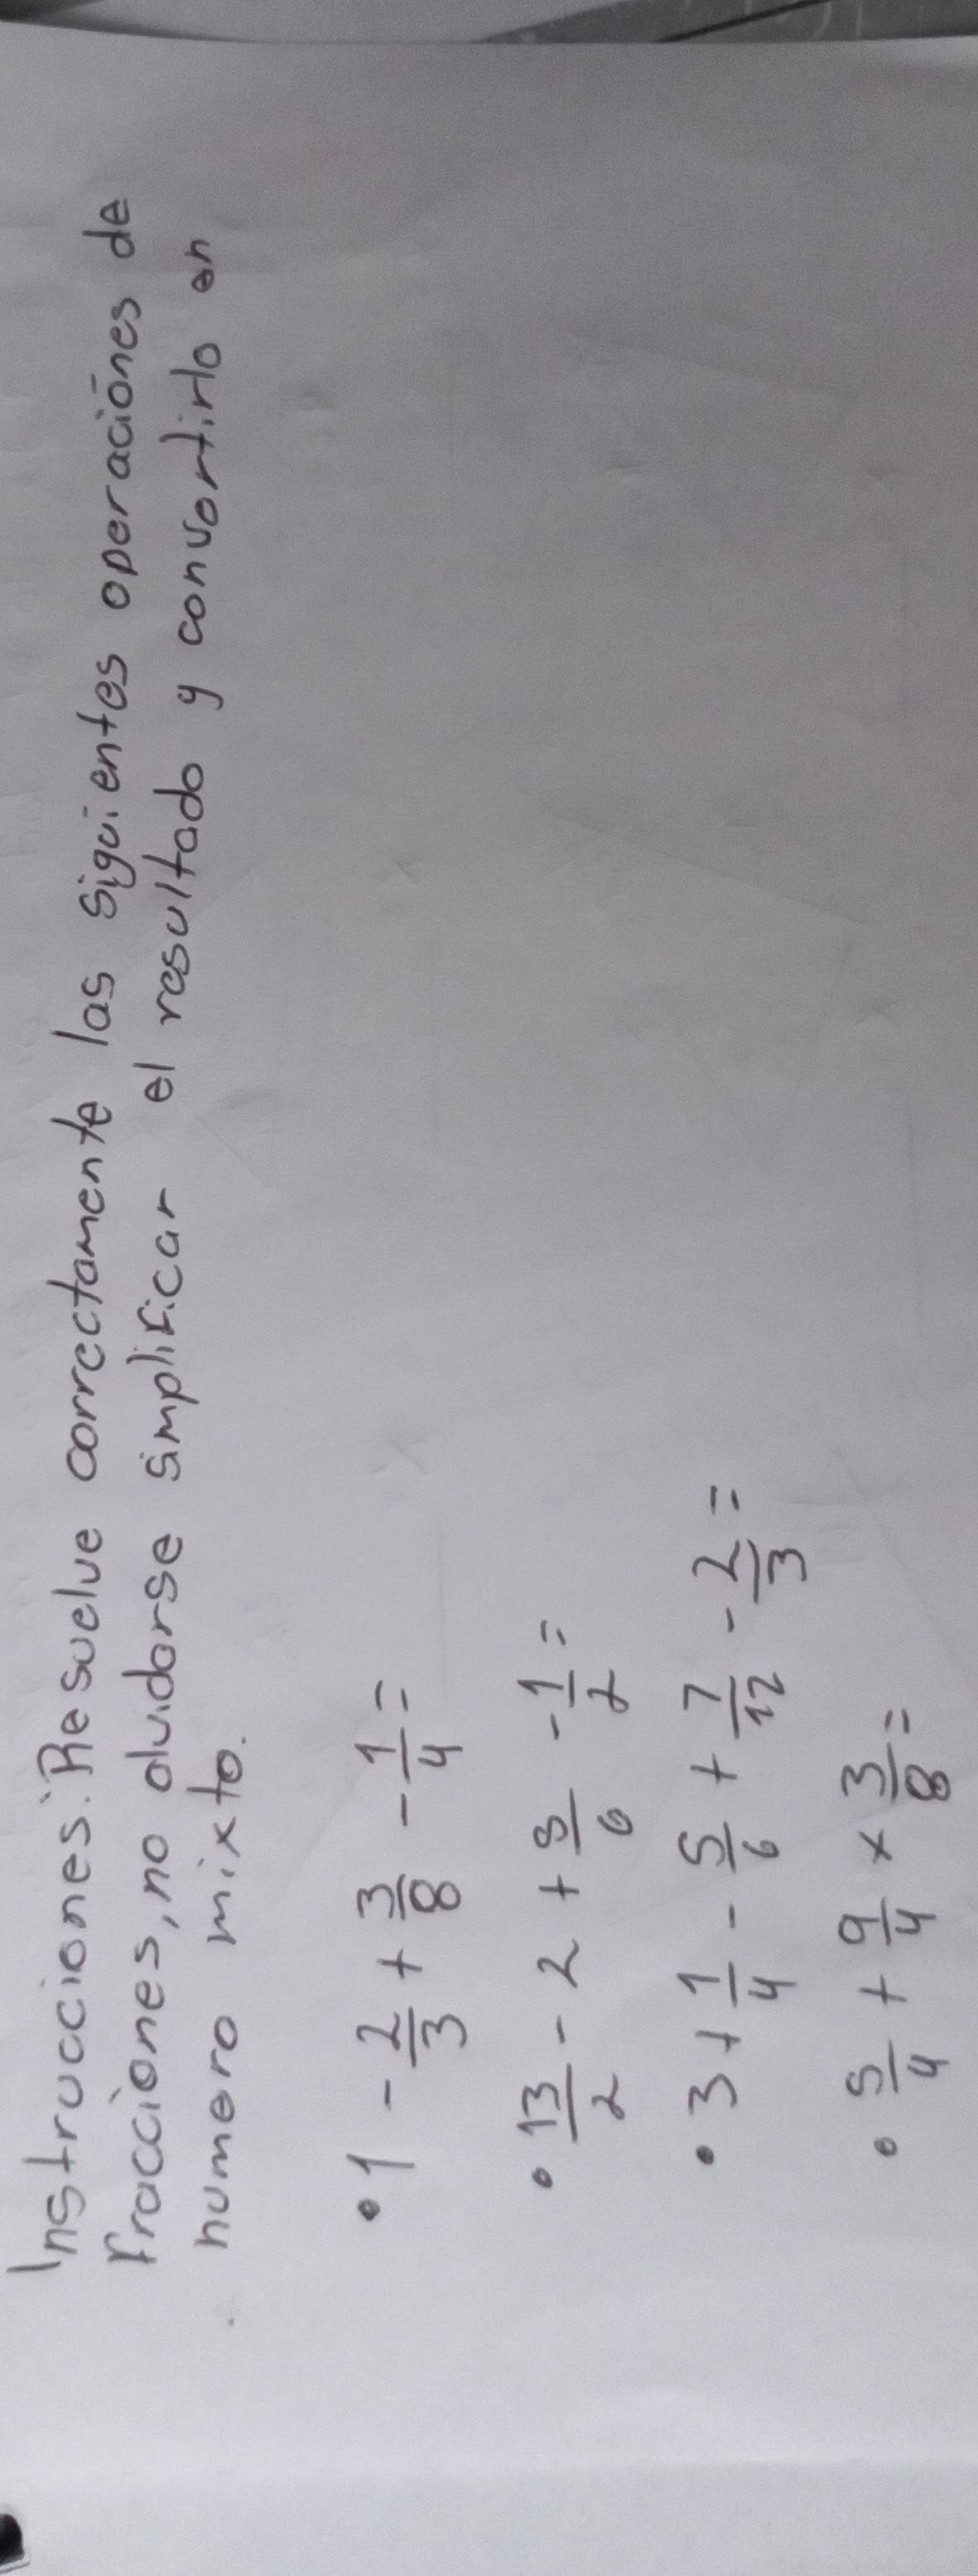 Instrucciones: Resuelve correctamente las siguientes operaciones de
fracciones, no olvidarse simplificar el resultado y convertirlo en
numero mixto.
• 1 - 2/3 + 3/8 - 1/4 =
• 13/2 - 2 + 5/6 - 1/2 =
• 3 + 1/4 - 5/6 + 7/12 - 2/3 =
• 5/4 + 9/4 x 3/8 =